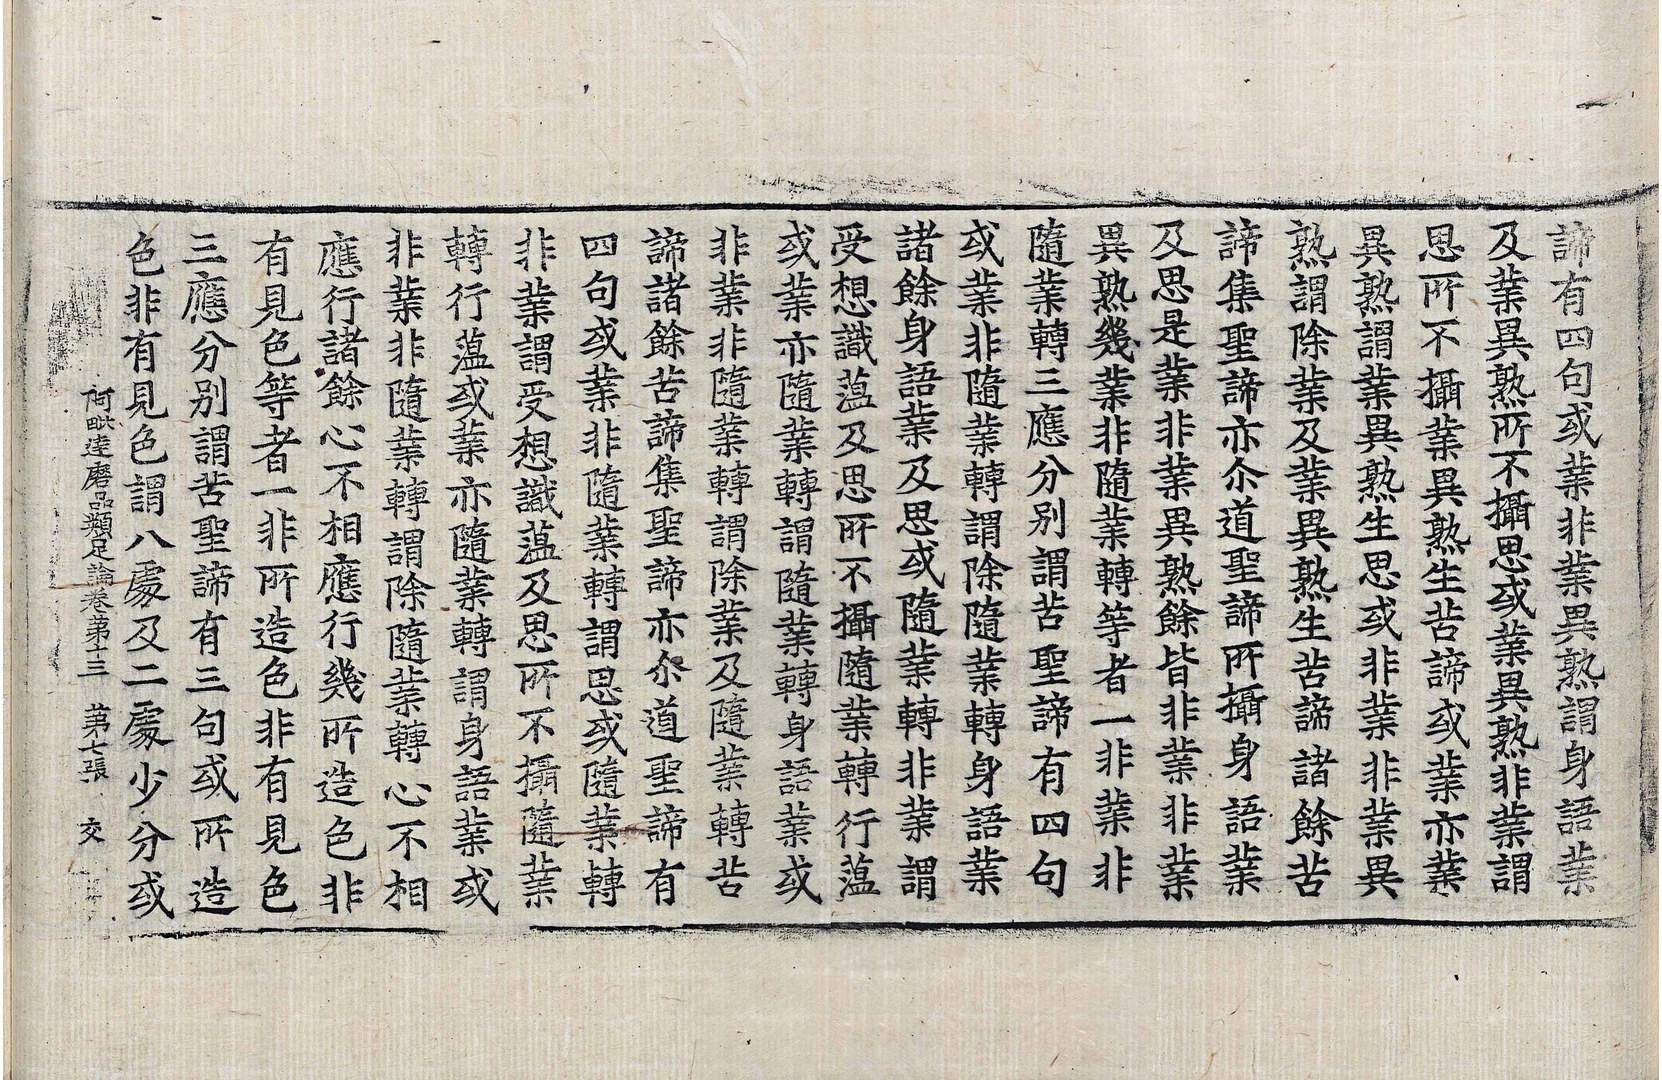 諦有四句或業非業異熟謂身語業
及業異熟所不攝思或業異熟非業謂
思所不攝業異熟生苦諦或業亦業
異熟謂業異熟生思或非業非業異
熟謂除業及業異熟生苦諦諸餘苦
諦集聖諦亦尒道聖諦所攝身語業
及思是業非業異熟餘皆非業非業
異熟幾業非隨業轉等者一非業非
隨業轉三應分別謂苦聖諦有四句
或業非隨業轉謂除隨業轉身語業
諸餘身語業及思或隨業轉非業謂
受想識蘊及思所不攝隨業轉行蘊
或業亦隨業轉謂隨業轉身語業或
非業非隨業轉謂除業及隨業轉苦
諦諸餘苦諦集聖諦亦尒道聖諦有
四句或業非隨業轉謂思或隨業轉
非業謂受想識蘊及思所不攝隨業
轉行蘊或業亦隨業轉謂身語業或
非業非隨業轉謂除隨業轉心不相
應行諸餘心不相應行幾所造色非
有見色等者一非所造色非有見色
三應分別謂苦聖諦有三句或所造
色非有見色謂八處及二處少分或
阿毗達磨品類足論卷第十三 第七張 交